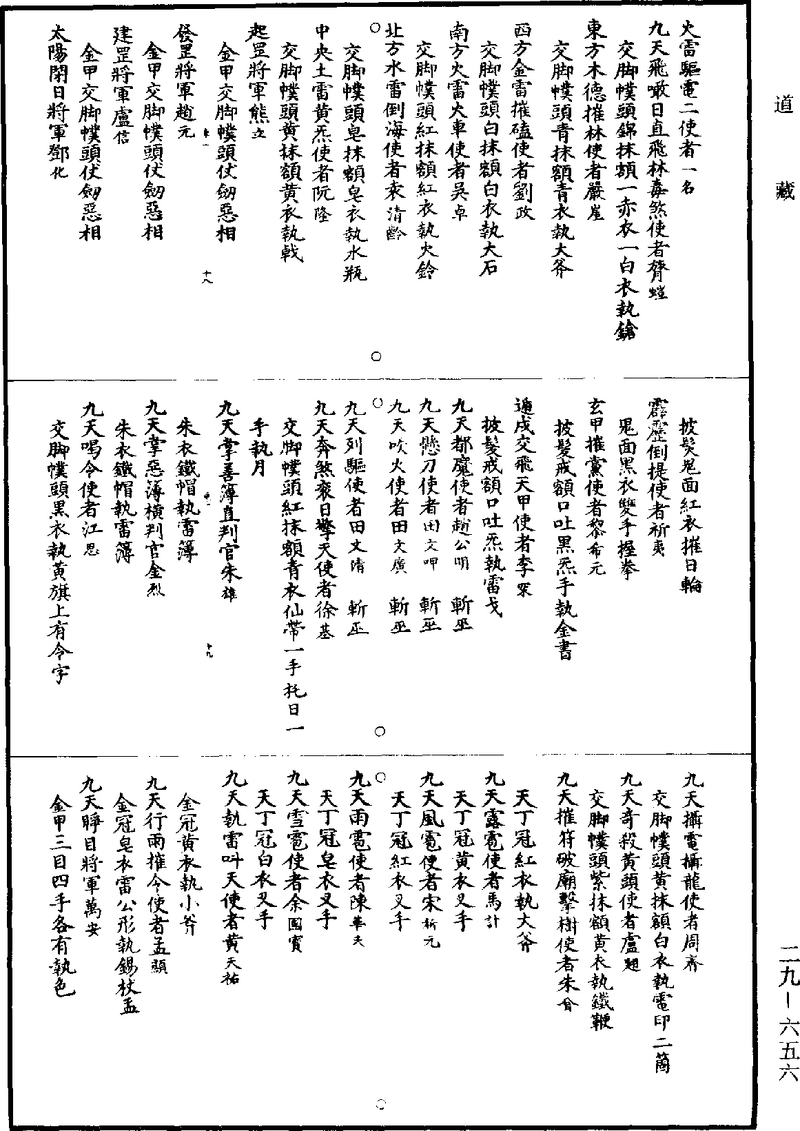 道藏
火雷驅電二使者一名
九天飛噉日直飛林毒煞使者䏿螘
交脚幞頭錦抹額一赤衣一白衣執鎗
東方木德摧林使者嚴崖
交脚幞頭青抹額青衣執大斧
西方金雷摧磕使者劉政
交脚幞頭白抹額白衣執大石
南方火雷火車使者吳卓
交脚幞頭紅抹額紅衣執火鈴
北方水雷倒海使者袁清齡
交脚幞頭皂抹額皂衣執水瓶
中央土雷黃炁使者阮隆
交脚幞頭黃抹額黃衣執戟
起罡將軍熊立
金甲交脚幞頭仗劒惡相
十八
發罡將軍趙元
金甲交脚幞頭仗劒惡相
建罡將軍盧信
金甲交脚幞頭仗劒惡相
太陽閉日將軍鄧化
披髮鬼面紅衣摧日輪
霹靂倒提使者祈夷
鬼面黑衣雙手握拳
玄甲摧黨使者黎希元
披髮戒額口吐黑炁手執金書
遁戌交飛天甲使者李罘
披髮戒額口吐炁執雷戈
九天都魔使者趙公明 斬巫
九天懸刀使者田文呷 斬巫
九天吹火使者田文廣 斬巫
九天列驅使者田文清 斬巫
九天奔煞衮日擎天使者徐基
交脚幞頭紅抹額青衣仙帶一手托日一
手執月
九天掌善簿直判官朱雄
十九
朱衣鐵帽執雷簿
九天掌惡簿橫判官金烈
朱衣鐵帽執雷簿
九天喝令使者江思
交脚幞頭黑衣執黃旗上有令字
九天攝電攝龍使者周齊
交脚幞頭黃抹額白衣執電印二箇
九天奇殺黃頭使者盧
交脚幞頭紫抹額黃衣執鐵鞭
九天摧符破廟擊樹使者朱
天丁冠紅衣執大斧
九天露雹使者馬計
天丁冠黃衣叉手
九天風雹使者宋祈元
天丁冠紅衣叉手
九天雨雹使者陳華夫
天丁冠皂衣叉手
九天雪雹使者余國賓
天丁冠白衣叉手
九天執雷叫天使者黃天祐
金冠黃衣執小斧
九天行雨摧令使者孟顯
金冠皂衣雷公形執錫杖盂
九天睜目將軍萬安
金甲三目四手各有執色
二九—六五六